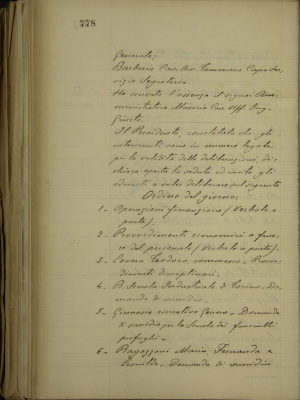 778
Generale,
Barberis Cav. Avv. Tommaso Capo Ser-
vizio Segreteria.
Ha scusato l'assenza il signor Am-
ministratore Masino Cav. Uff. Ing.
Giusto.
Il Presidente, constatato che gli
intervenuti sono in numero legale
per la validità delle deliberazioni, di-
chiara aperta la seduta ed invita gli
adunati a voler deliberare sul seguente
Ordine del giorno:
1- Operazioni finanziarie (Verbale a
parte).
2- Provvedimenti economici a favo-
re del personale (Verbale a parte).
3- Teodoro, commesso - Provve-
dimenti disciplinari.
4- R. Scuola Industriale di Torino - Do-
manda di sussidio.
5- Ginnasio ricreativo - Domanda
di sussidio per la Scuola dei fanciulli
profughi.
6- Ragazzoni Maria, Fernanda e
- Domanda di sussidio